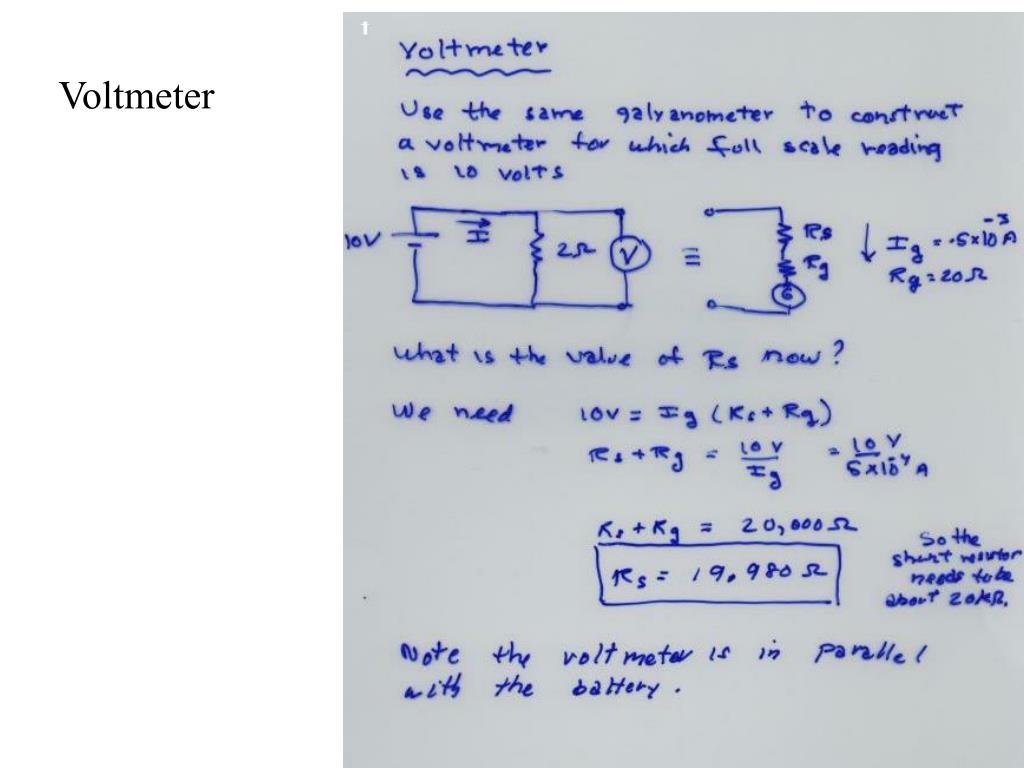 Voltmeter
Voltmeter
Use the same galvanometer to construct
a voltmeter for which full scale reading
is 10 volts
10V
I
2Ω
V
≡
Rs
Rg
G
Ig = .5x10⁻³ A
Rg = 20 Ω
What is the value of Rs now?
We need 10V = Ig (Rs + Rg)
Rs + Rg = 10 V / Ig = 10 V / 5x10⁻⁴ A
Rs + Rg = 20,000 Ω
Rs = 19,980 Ω
So the
shunt resistor
needs to be
about 20kΩ.
Note the voltmeter is in parallel
with the battery.